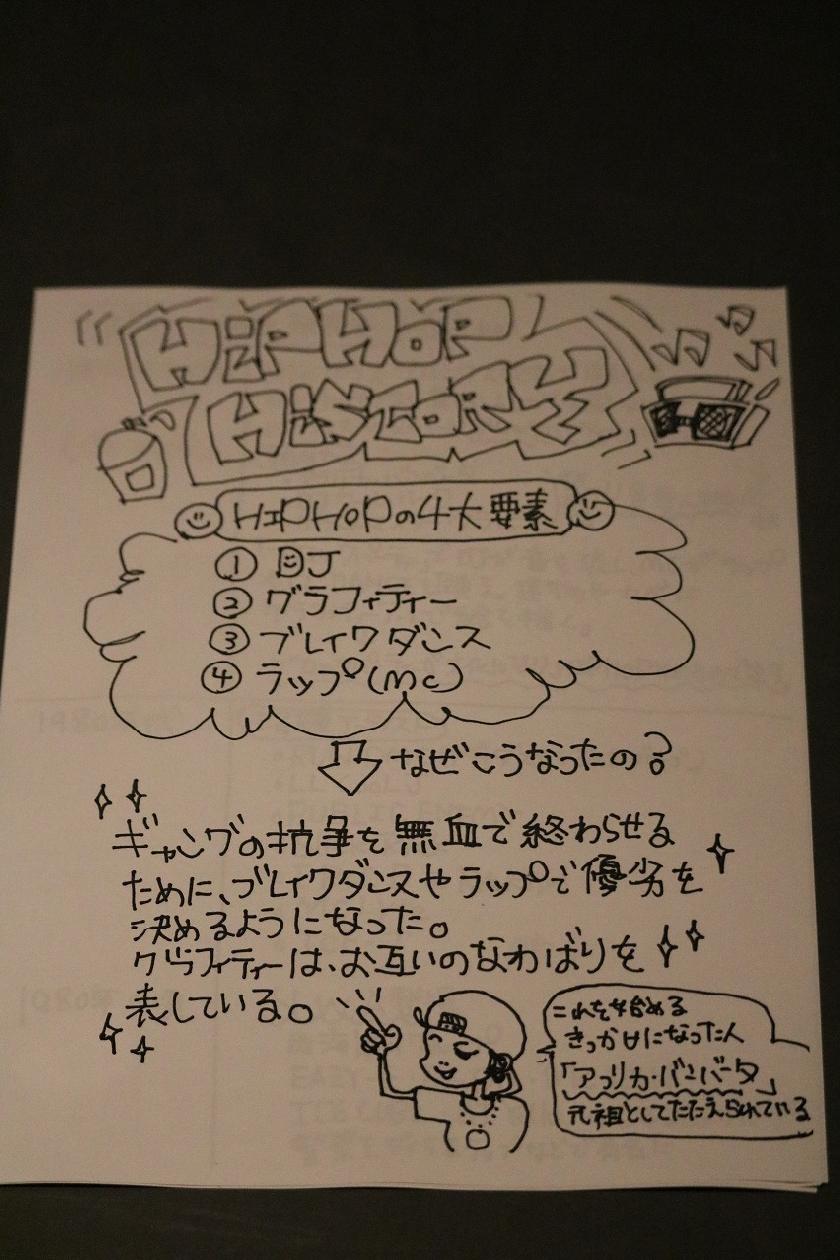 HiPHOP
HiSTORY
HIPHOPの4大要素
① DJ
② グラフィティー
③ ブレイクダンス
④ ラップ(MC)
なぜこうなったの?
ギャングの抗争を無血で終わらせる
ために、ブレイクダンスやラップで優劣を
決めるようになった。
グラフィティーは、お互いのなわばりを
表している。
これを始める
きっかけになった人
「アフリカ・バンバータ」
元祖としてたたえられている